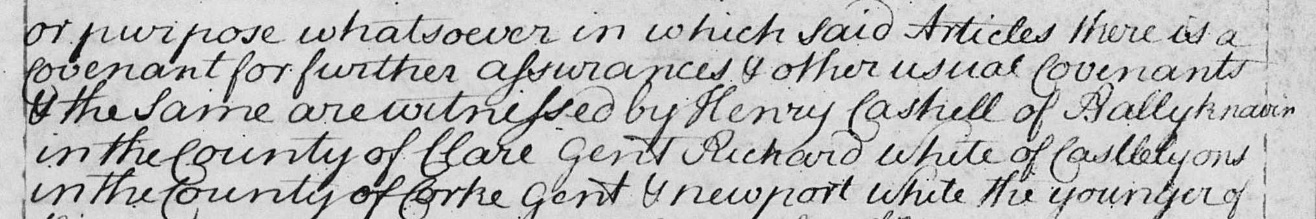 or purpose whatsoever in which said Articles there is a
Covenant for further assurances & other usual Covenants
& the Same are witnessed by Henry Cashell of Ballyknavin
in the County of Clare Gent Richard white of Castlelyons
in the County of Corke Gent & newport white the younger of